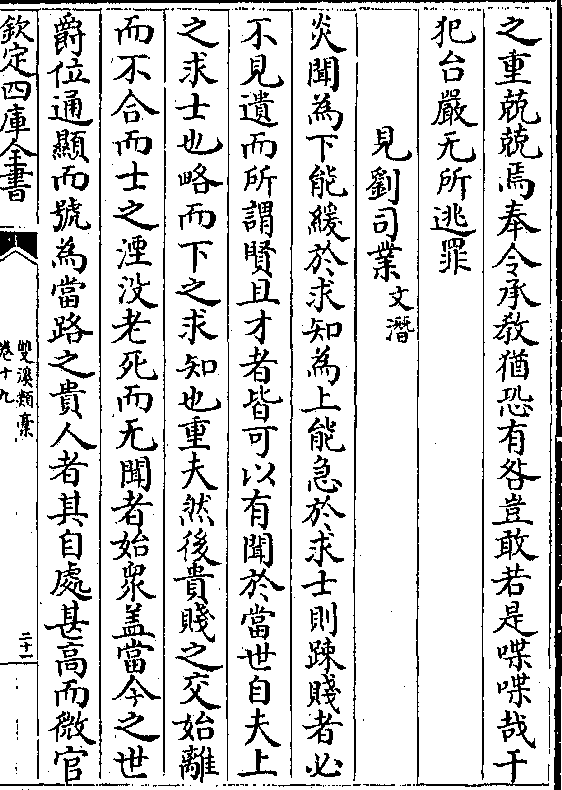 之重兢兢焉奉令承教猶恐有咎豈敢若是喋喋哉干
犯台嚴无所逃罪
見劉司業文潛
炎聞為下能緩於求知為上能急於求士則踈賤者必
不見遺而所謂賢且才者皆可以有聞於當世自夫上
之求士也略而下之求知也重夫然後貴賤之交始離
而不合而士之湮没老死而无聞者始衆盖當今之世
爵位通顯而號為當路之貴人者其自處甚高而微官
欽定四庫全書
雙溪類藁
卷十九
二十一